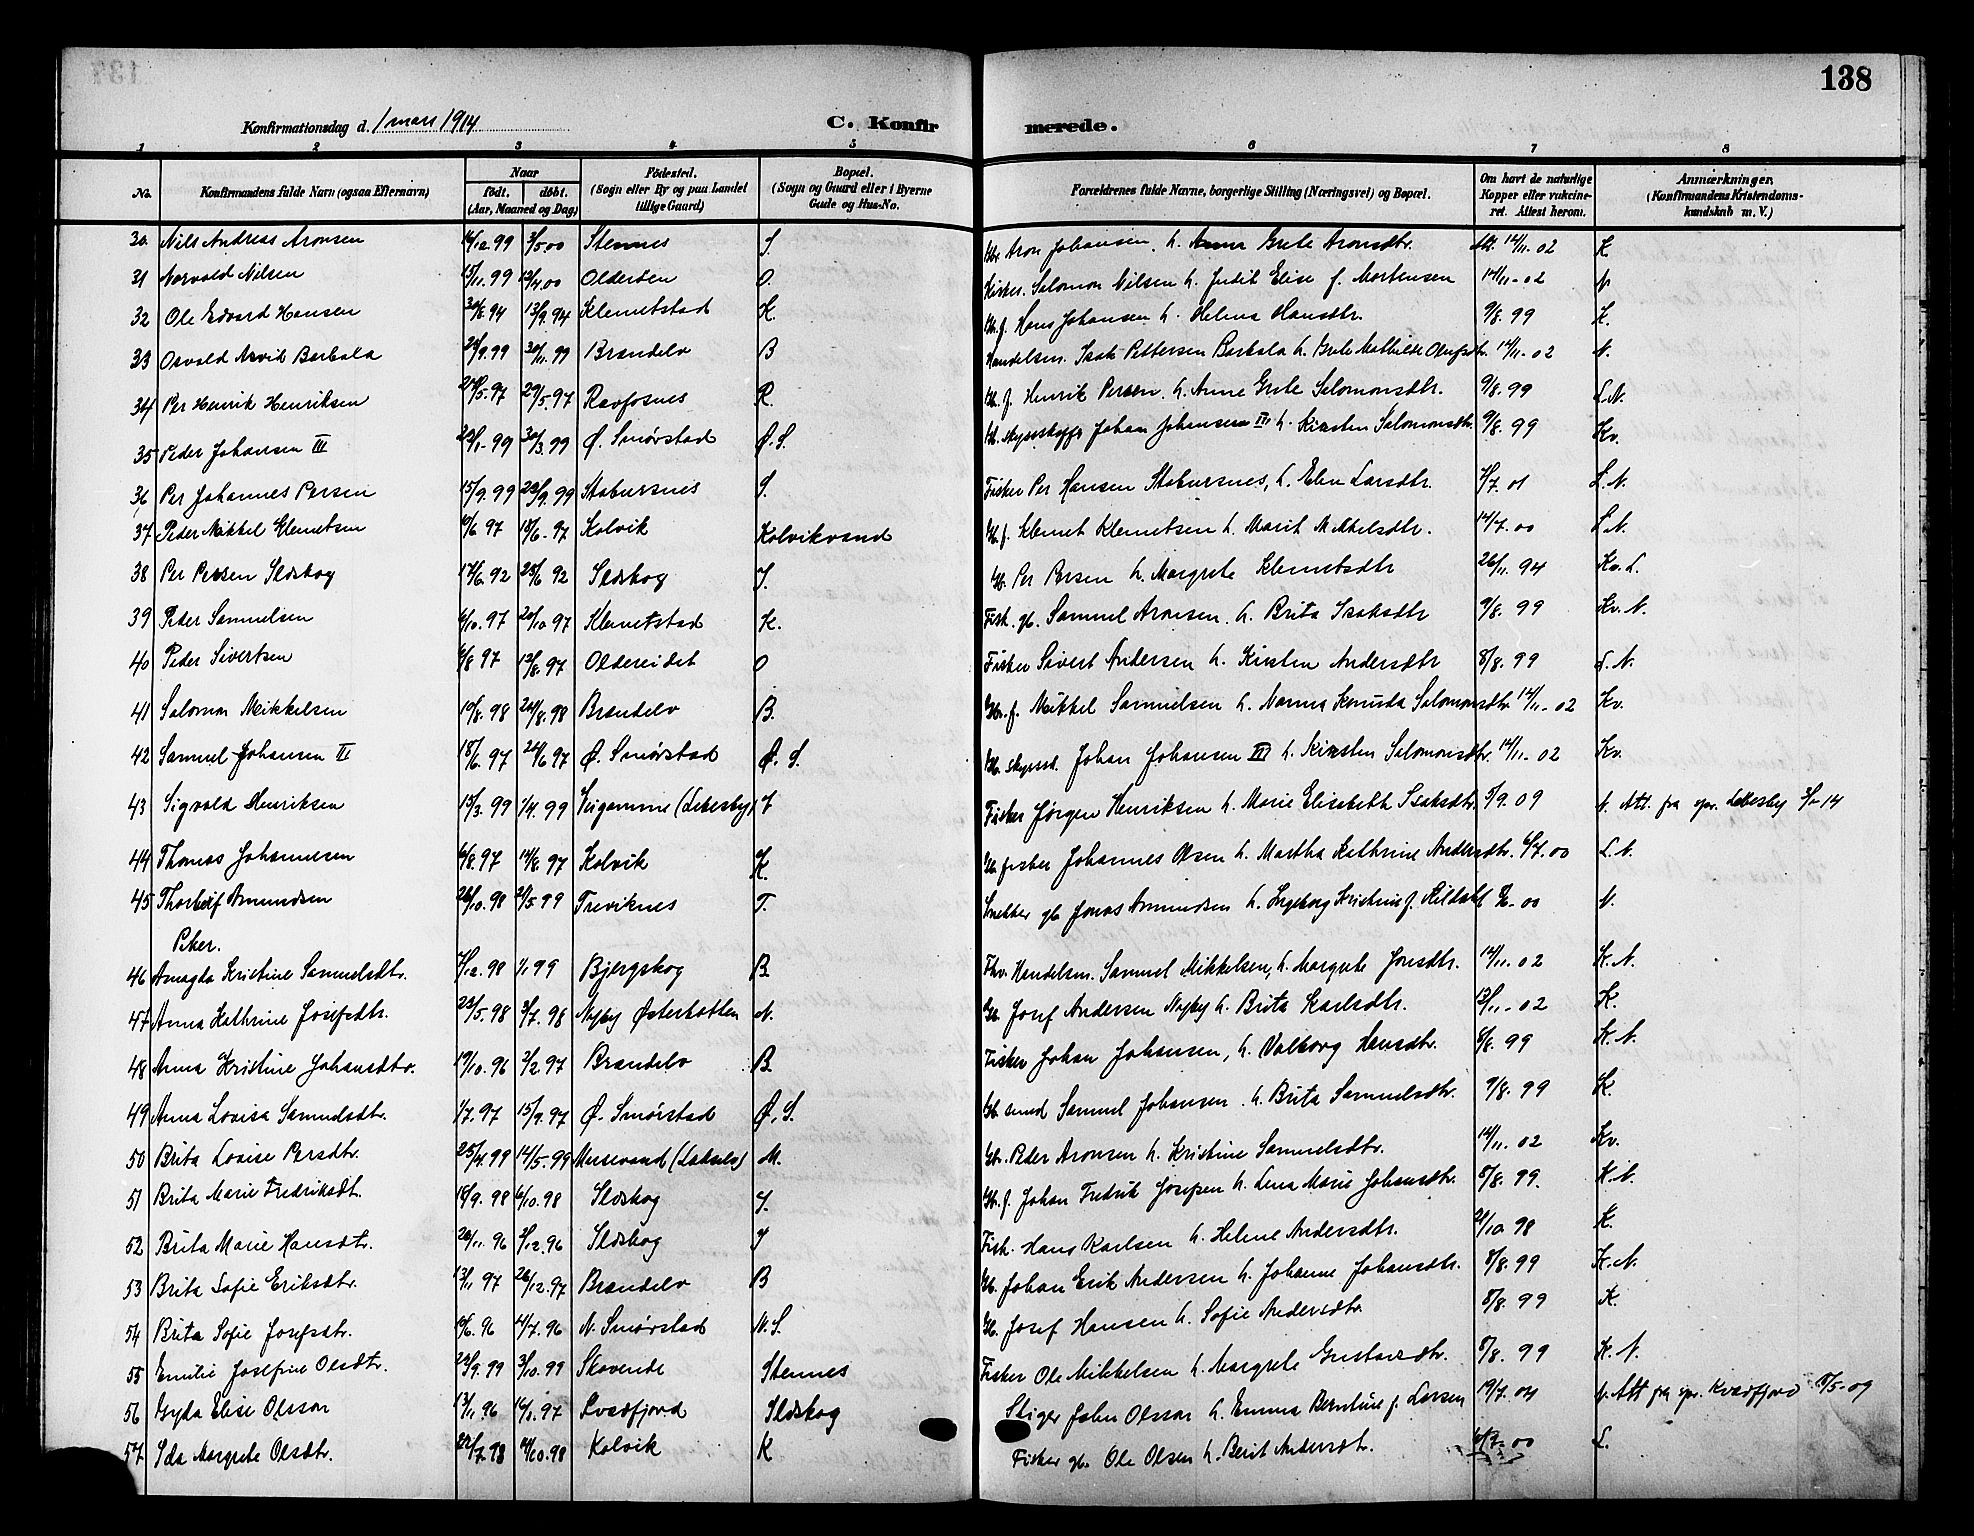 138
Konfirmationsdag d. 1 mars 1914
C. Konfirmerede.
1 2 3 4 5 6 7 8
No. Konfirmandens fulde Navn (ogsaa Efternavn) Naar født. døbt. (Aar, Maaned og Dag) Fødested. (Sogn eller By og paa Landet tillige Gaard) Bopæl. (Sogn og Gaard eller i Byerne Gade og Hus-No. Forældrenes fulde Navne, borgerlige Stilling (Næringsvei) og Bopæl. Om havt de naturlige Kopper eller vakcineret. Attest herom. Anmærkninger, (Konfirmandens Kristendomskundskab m. V.)
30 Nils Andreas Aronsen 3/5.00 Stennes S. Aron Johansen, h. Anna Grete Aronsdtr. 14/11.02 K
31 Norvald Nilsen 15/11.99 Olderøen O. Salomon Nilsen h. Judit Elise f. Mortensen 14/11-02 N
32 Ole Edvard Hansen 13/9.94 Klemetstad K. Gb. f. Hans Johansen h. Helena Hansdtr. 9/8.99 K.
33 Osvald Arvik Barbala 30/11.99 Brændelv B Handelsm. Isak Pettersen Barbala h. Grete Mathilde Olufsdtr. 14/11-02 N.
34 Per Henrik Henriksen 29/5.97 Ravfosnes R. Gb. f. Henrik Persen h. Anne Grete Salomonsdtr. 9/8.99 L.N.
35 Peder Johansen III 30/3.99 Ø. Smørstad Ø.S. Johan Johansen III h. Kirsten Salomonsdtr. 9/8.99 Kv.
36 Per Johannes Persen 15/9.99 Stabursnes S. Fisker Per Hansen Stabursnes, h. Elen Larsdtr. L.N.
37 Peder Mikkel Klemetsen 18/6.97 Kolvik Kolvikvand Gb. f. Klemet Klemetsen h. Marit Mikkelsdtr. 14/7.00 L N.
38 Per Persen Sldskog 17/6.92 Sldskog S. Gb. Per Persen h. Margrete Klemetsdtr 26/11.94 Kv. L.
39 Peder Samuelsen 6/10.97 Klemetstad K. Fisk. gb. Samuel Aronsen h. Brita Isaksdtr 9/8.99 Kv. N.
40 Peder Sivertsen Oldereidet O Fisker Sivert Andersen h. Kirsten Andersdtr 8/8.99 L. N.
41 Salomon Mikkelsen 10/8.98 24/8.98 Brændelv B. Gb. f. Mikkel Samuelsen h. Nanna Salomonsdtr. 14/11-02 Kv.
42 Samuel Johansen III 18/6.97 Ø. Smørstad Ø. S. Johan Johansen III h. Kirsten Salomonsdtr. 14/11-02 Kv.
43 Sigvald Henriksen 15/3.99 1/4.99 (Lebesby) Fisker Jørgen Henriksen h. Marie Elisabeth Isaksdtr. 5/9.09 N. Att. fra spr. Lebesby 14
44 Thomas Johannesen 6/8.97 14/8.97 Kolvik K. Gb. fisker Johannes Olsen h. Martha Kathrine Andersdtr. 6/7.00 L.N.
45 Thorleif Amundsen 26/10.98 21/5.99 Treviknes T. Snekker gb Jonas Amundsen h. Ingeborg Kristine f. 00 N.
Piker.
46 Amagda Kristine Samuelsdtr. 7/12.98 1/1 99 Bjergskog B. Handelsm. Samuel Mikkelsen, h. Margrete Jonsdtr. 14/11.02 K. N.
47 Anna Kathrine Josefsdtr. 23/5.98 3/7.98 Nyby Østerbotten N. Gb. Josef Andersen Nyby h. Brita Karlsdtr. 13/11.02 K.
48 Anna Kristine Johansdtr. 19/10.96 2/2.97 Brændelv B. Fisker Johan Johansen, h. Valborg Hansdtr. 8/8.99 K. N.
49 Anna Lovisa Samuelsdtr. 1/7.97 15/9.97 Ø. Smørstad Ø. S. Gb. smed Samuel Johansen h. Brita Samuelsdtr. 9/8.99 K.
50 Brita Lovise Persdtr. 25/4.99 14/5.99 (Lakselv) M. Gbr. Peder Aronsen h. Kristine Samuelsdtr. 14/11.02 Kv.
51 Brita Marie Fredriksdt. 18/9.98 6/10.98 Sldskog S. Gb. f. Johan Fredrik Josefsen h. Lena Marie Johansdtr. 8/8.99. K. N.
52 Brita Marie Hansdtr. 20/11.96 Sldskog S Fisk. Hans Karlsen h. Helene Andersdtr. 21/10 98 K.
53 Brita Sofie Eriksdtr. 13/11 97 26/12.97 Brændelv B Gb. Johan Erik Andersen h. Johanne Johansdtr. 8/8.99 K. N.
54 Brita Sofie Josefsdtr. 4/7.96 N. Smørstad N.S. Gb. Josef Hansen h. Sofie Andersdtr. 8/8.99 K.
55 Emilie Josefine Olsdtr. 23/9.99 3/10.99 Skovende Stennes Fisker Ole Mikkelsen h. Margrete Gustavsdtr. 8/8.99 K. N.
56 Gyda Elise Olsson 13/11.96 Kvæfjord Sldskog Stiger John Olsson h. Emma Berntine f. Larsen 19/7.04 N. Att fra spr. Kvæfjord 09
57 Ida Margrete Olsdtr. 22/7.98 Kolvik K Fisker gb. Ole Olsen h. Berit Andersdtr. 6/7.00 L.